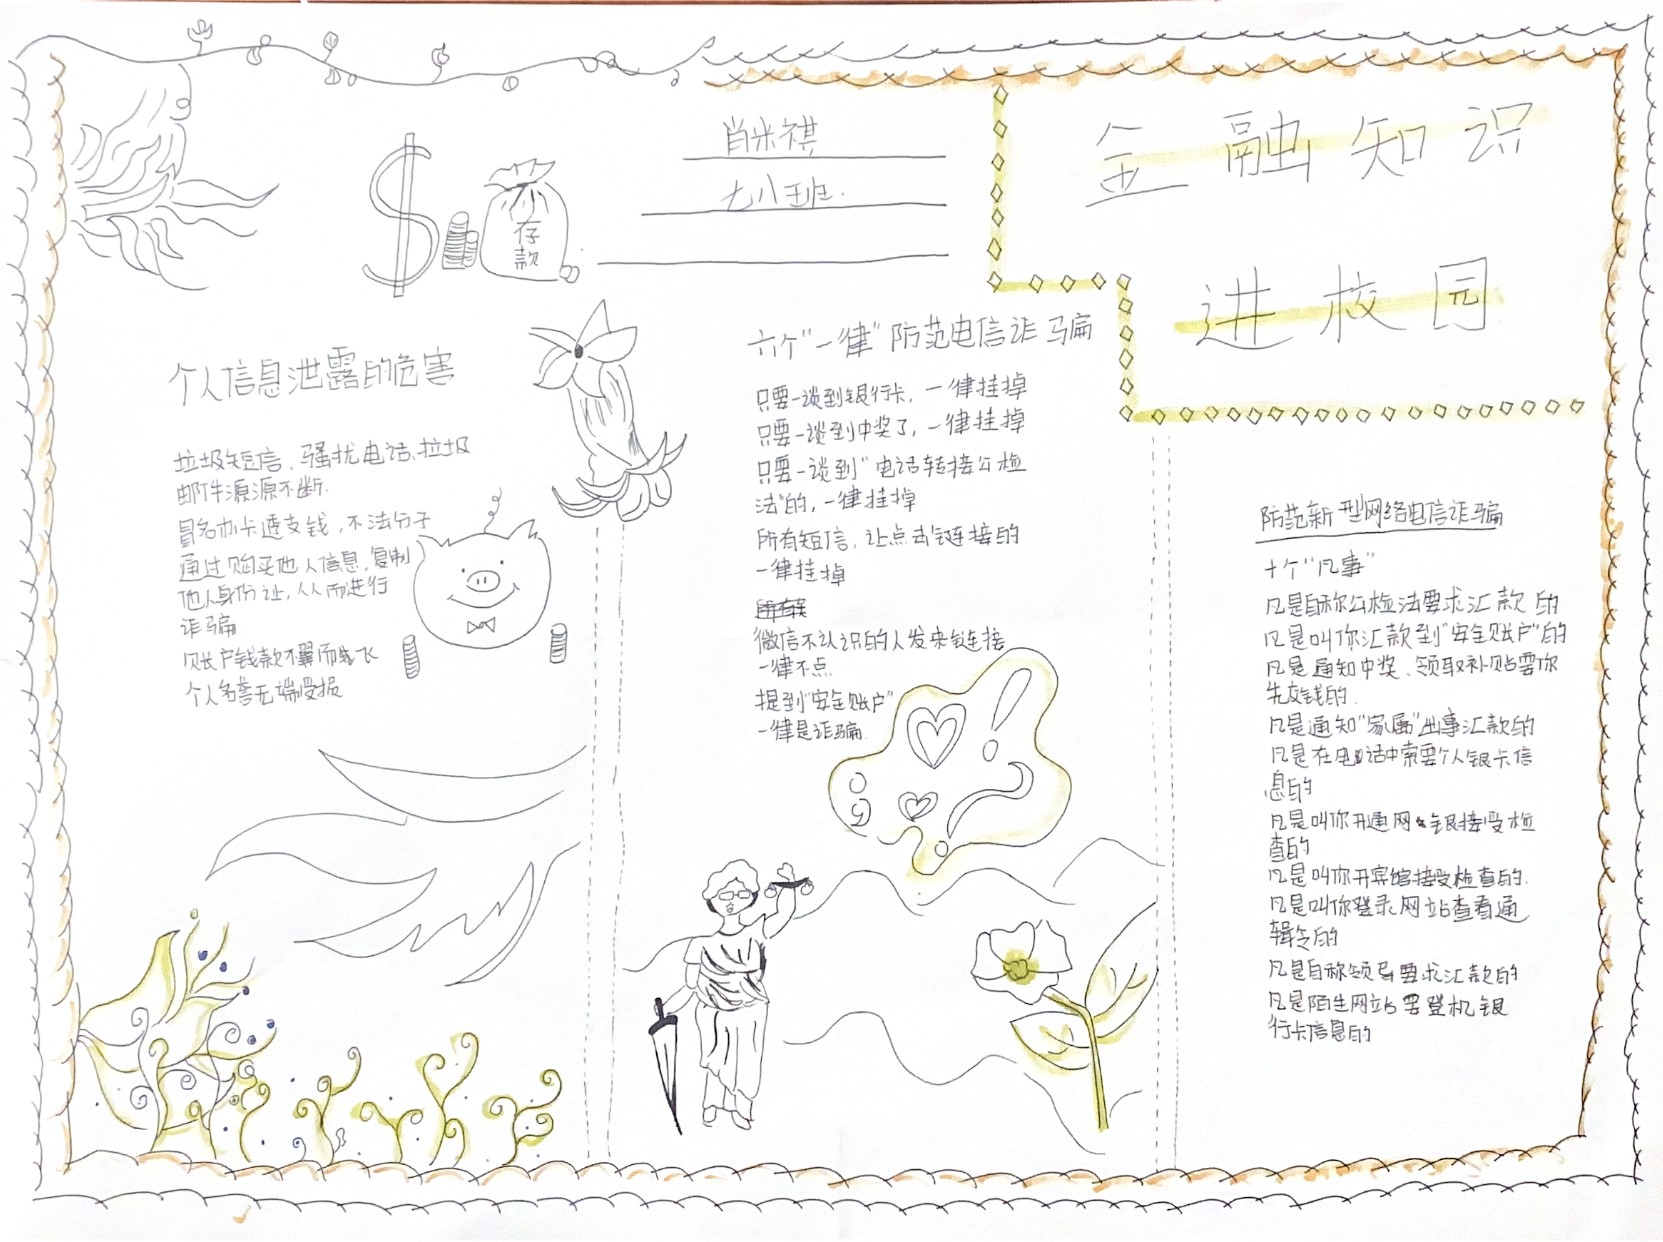 金融知识
进校园
肖米祺
七八班.
存
款
个人信息泄露的危害
垃圾短信、骚扰电话、垃圾
邮件源源不断.
冒名办卡透支钱，不法分子
通过购买他人信息，复制
他人身份证，从而进行
诈骗
账户钱款不翼而飞
个人名誉无端受损
六个"一律"防范电信诈骗
只要一谈到银行卡，一律挂掉
只要一谈到中奖了，一律挂掉
只要一谈到"电话转接公检
法"的，一律挂掉
所有短信，让点击链接的
一律挂掉
微信不认识的人发来链接
一律不点
提到"安全账户"
一律是诈骗
防范新型网络电信诈骗
十个"凡事"
凡是自称公检法要求汇款的
凡是叫你汇款到"安全账户"的
凡是通知中奖、领取补贴要你
先交钱的.
凡是通知"家属"出事汇款的
凡是在电话中索要个人银卡信
息的
凡是叫你开通网银接受检
查的
凡是叫你开宾馆接受检查的.
凡是叫你登录网站查看通
辑令的
凡是自称领导要求汇款的
凡是陌生网站要登机银
行卡信息的